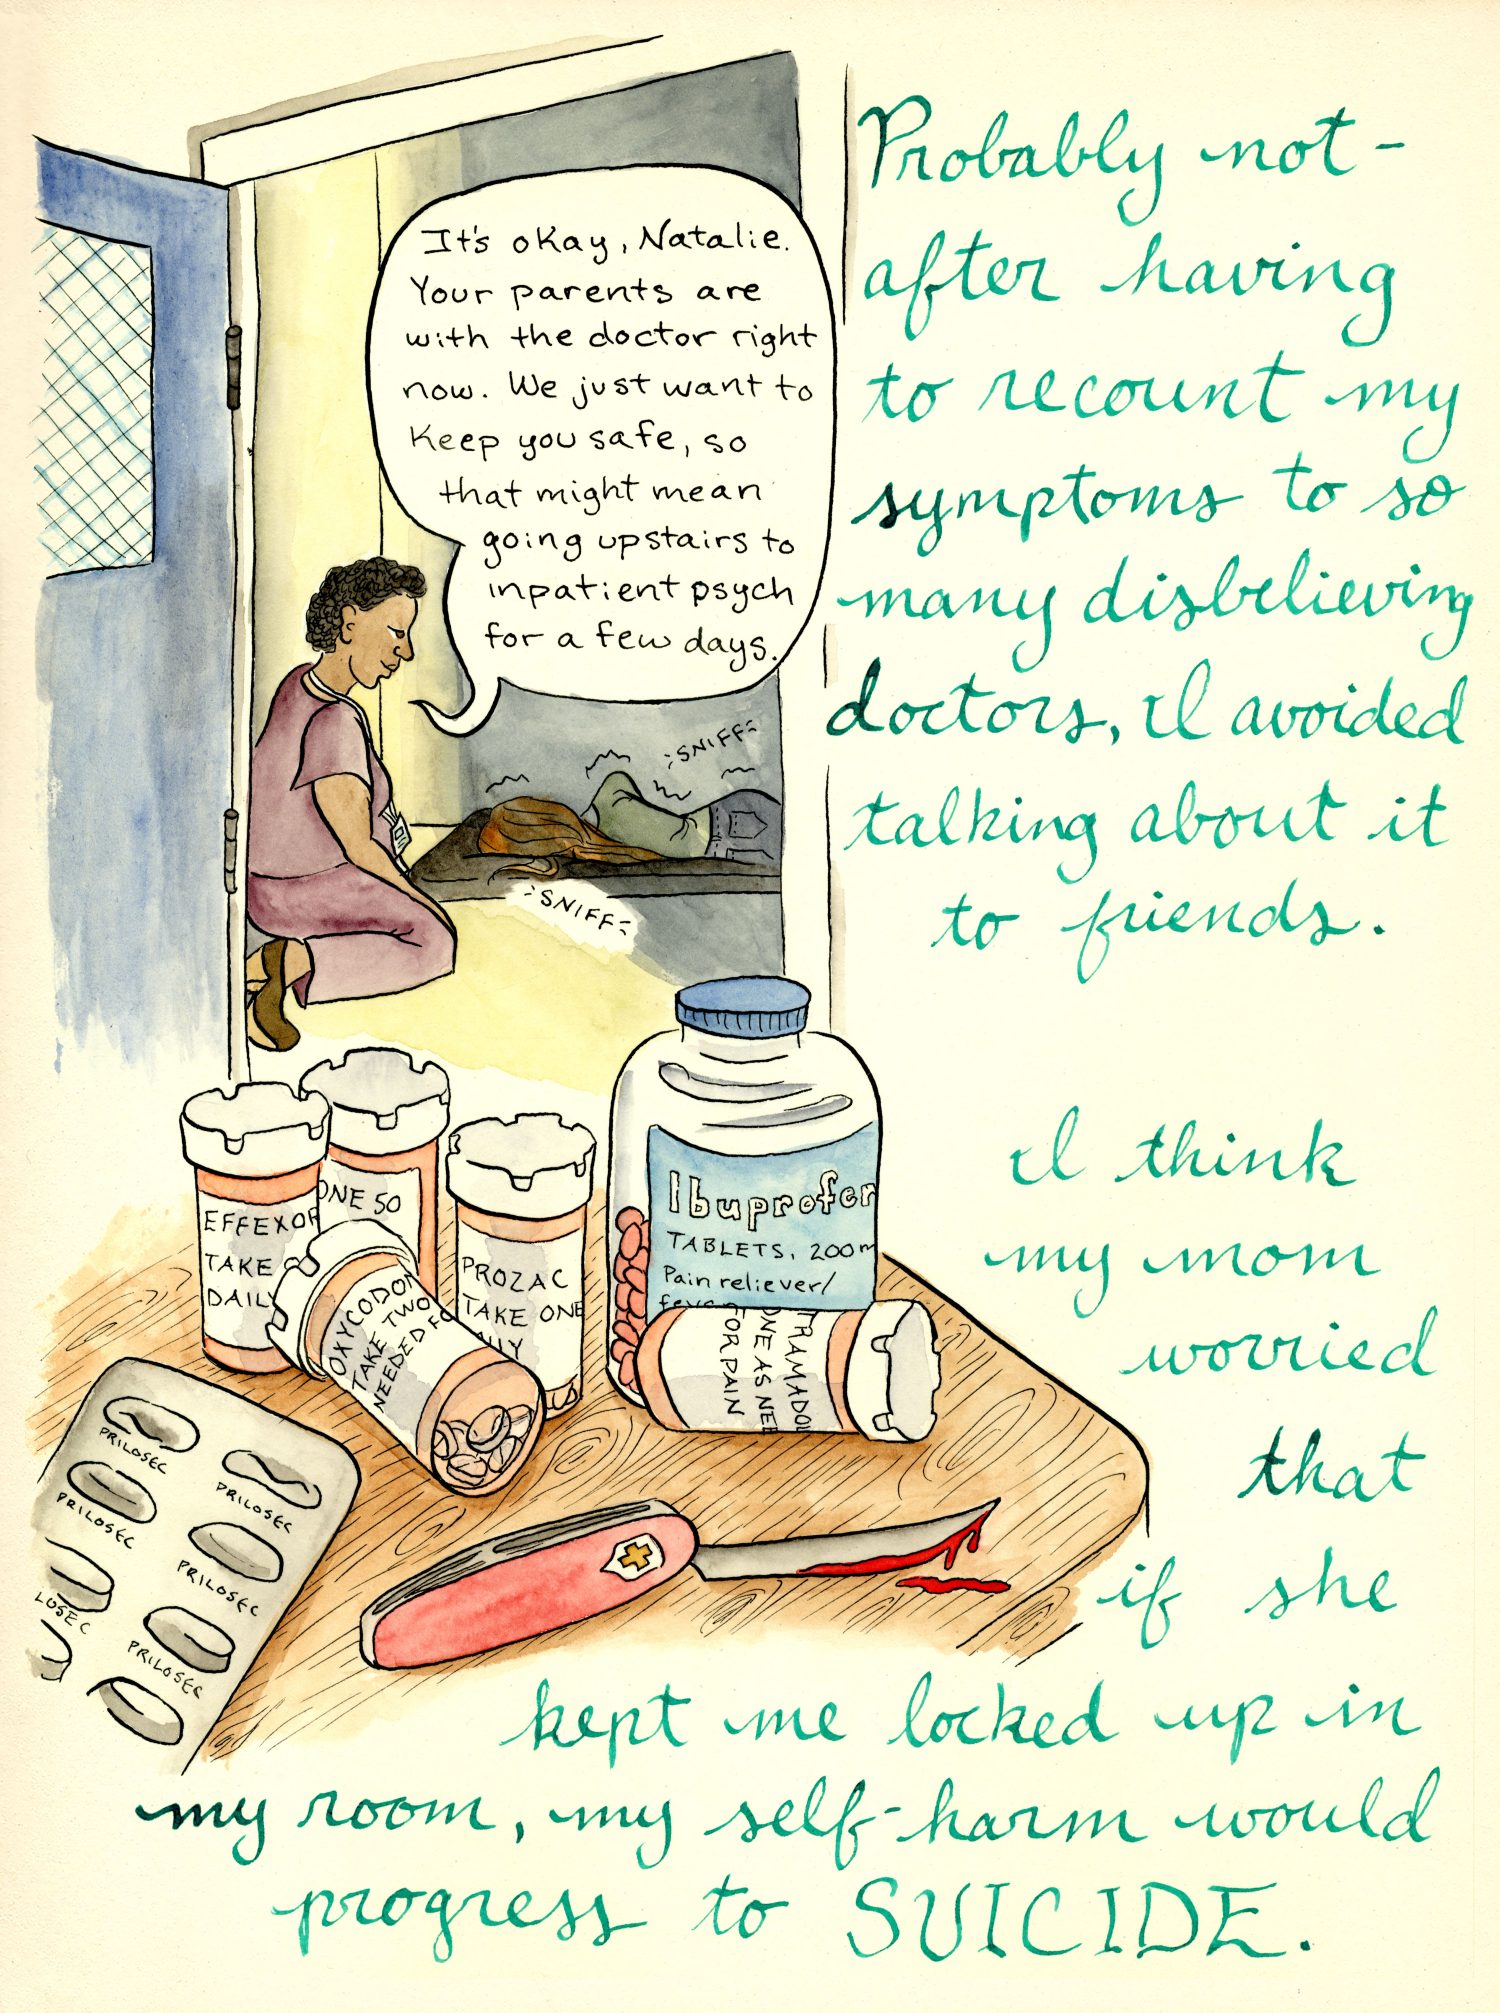 Probably not-
after having
to recount my
symptoms to so
many disbelieving
doctors, I avoided
talking about it
to friends.
It's okay, Natalie.
Your parents are
with the doctor right
now. We just want to
Keep you safe, so
that might mean
going upstairs to
inpatient psych
for a few days.
SNIFF
SNIFF
EFFEXOR
TAKE
DAILY
ONE 50
OXYCODON
TAKE TWO
NEEDED FO
PROZAC
TAKE ONE
LY
Ibuprofen
TABLETS, 200m
Pain reliever/
feve
TRAMADOL
ONE AS NEE
FOR PAIN
PRILOSEC
PRILOSEC
PRILOSEC
PRILOSEC
LOSEC
PRILOSEC
I think
my mom
worried
that
if she
kept me locked up in
my room, my self-harm would
progress to SUICIDE.